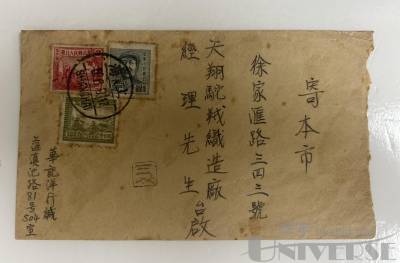 寄本市
徐家匯路三四三號
天翔駝絨織造廠
經理先生台啟
華記洋行緘
滇池路81号
504室
UNIVERSE